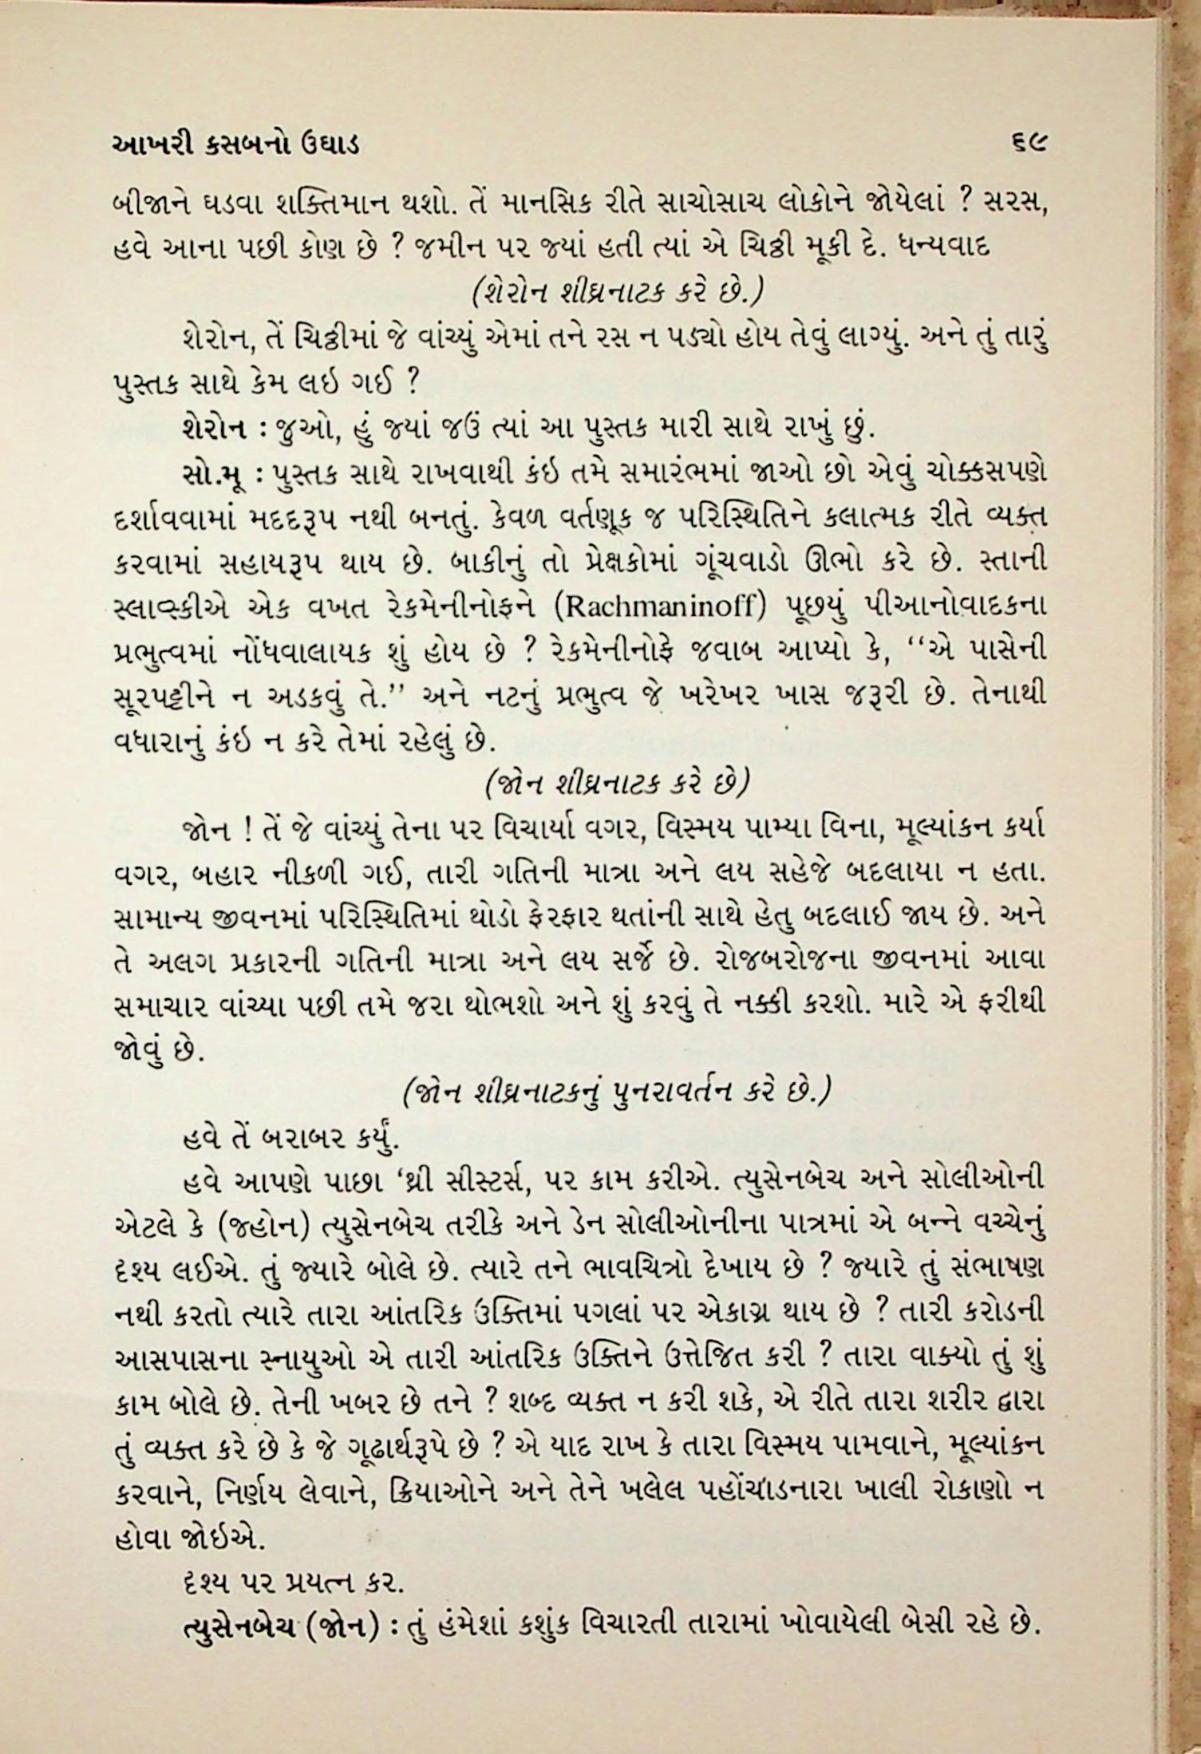 આખરી કસબનો ઉઘાડ ૬૯
બીજાને ઘડવા શક્તિમાન થશો. તેં માનસિક રીતે સાચોસાચ લોકોને જોયેલાં ? સરસ,
હવે આના પછી કોણ છે ? જમીન પર જ્યાં હતી ત્યાં એ ચિઠ્ઠી મૂકી દે. ધન્યવાદ
(શેરોન શીઘ્રનાટક કરે છે.)
શેરોન, તેં ચિઠ્ઠીમાં જે વાંચ્યું એમાં તને રસ ન પડ્યો હોય તેવું લાગ્યું. અને તું તારું
પુસ્તક સાથે કેમ લઇ ગઈ ?
શેરોન : જુઓ, હું જ્યાં જઉં ત્યાં આ પુસ્તક મારી સાથે રાખું છું.
સો.મૂ : પુસ્તક સાથે રાખવાથી કંઇ તમે સમારંભમાં જાઓ છો એવું ચોક્કસપણે
દર્શાવવામાં મદદરૂપ નથી બનતું. કેવળ વર્તણૂક જ પરિસ્થિતિને કલાત્મક રીતે વ્યક્ત
કરવામાં સહાયરૂપ થાય છે. બાકીનું તો પ્રેક્ષકોમાં ગૂંચવાડો ઊભો કરે છે. સ્તાની
સ્લાવ્સ્કીએ એક વખત રેકમેનીનોફને (Rachmaninoff) પૂછયું પીઆનોવાદકના
પ્રભુત્વમાં નોંધવાલાયક શું હોય છે ? રેકમેનીનોફે જવાબ આપ્યો કે, ‘‘એ પાસેની
સૂરપટ્ટીને ન અડકવું તે.’’ અને નટનું પ્રભુત્વ જે ખરેખર ખાસ જરૂરી છે. તેનાથી
વધારાનું કંઇ ન કરે તેમાં રહેલું છે.
(જોન શીઘ્રનાટક કરે છે)
જોન ! તેં જે વાંચ્યું તેના પર વિચાર્યા વગર, વિસ્મય પામ્યા વિના, મૂલ્યાંકન કર્યા
વગર, બહાર નીકળી ગઈ, તારી ગતિની માત્રા અને લય સહેજે બદલાયા ન હતા.
સામાન્ય જીવનમાં પરિસ્થિતિમાં થોડો ફેરફાર થતાંની સાથે હેતુ બદલાઈ જાય છે. અને
તે અલગ પ્રકારની ગતિની માત્રા અને લય સર્જે છે. રોજબરોજના જીવનમાં આવા
સમાચાર વાંચ્યા પછી તમે જરા થોભશો અને શું કરવું તે નક્કી કરશો. મારે એ ફરીથી
જોવું છે.
(જોન શીઘ્રનાટકનું પુનરાવર્તન કરે છે.)
હવે તેં બરાબર કર્યું.
હવે આપણે પાછા ‘થ્રી સીસ્ટર્સ, પર કામ કરીએ. ત્યુસેનબેચ અને સોલીઓની
એટલે કે (જહોન) ત્યુસેનબેચ તરીકે અને ડેન સોલીઓનીના પાત્રમાં એ બન્ને વચ્ચેનું
દૃશ્ય લઈએ. તું જ્યારે બોલે છે. ત્યારે તને ભાવચિત્રો દેખાય છે ? જ્યારે તું સંભાષણ
નથી કરતો ત્યારે તારા આંતરિક ઉક્તિમાં પગલાં પર એકાગ્ર થાય છે ? તારી કરોડની
આસપાસના સ્નાયુઓ એ તારી આંતરિક ઉક્તિને ઉત્તેજિત કરી ? તારા વાક્યો તું શું
કામ બોલે છે. તેની ખબર છે તને ? શબ્દ વ્યક્ત ન કરી શકે, એ રીતે તારા શરીર દ્વારા
તું વ્યક્ત કરે છે કે જે ગૂઢાર્થરૂપે છે ? એ યાદ રાખ કે તારા વિસ્મય પામવાને, મૂલ્યાંકન
કરવાને, નિર્ણય લેવાને, ક્રિયાઓને અને તેને ખલેલ પહોંચાડનારા ખાલી રોકાણો ન
હોવા જોઇએ.
દૃશ્ય પર પ્રયત્ન કર.
ત્યુસેનબેચ (જોન) : તું હંમેશાં કશુંક વિચારતી તારામાં ખોવાયેલી બેસી રહે છે.